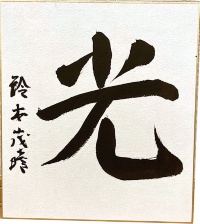 光
鈴木茂晴